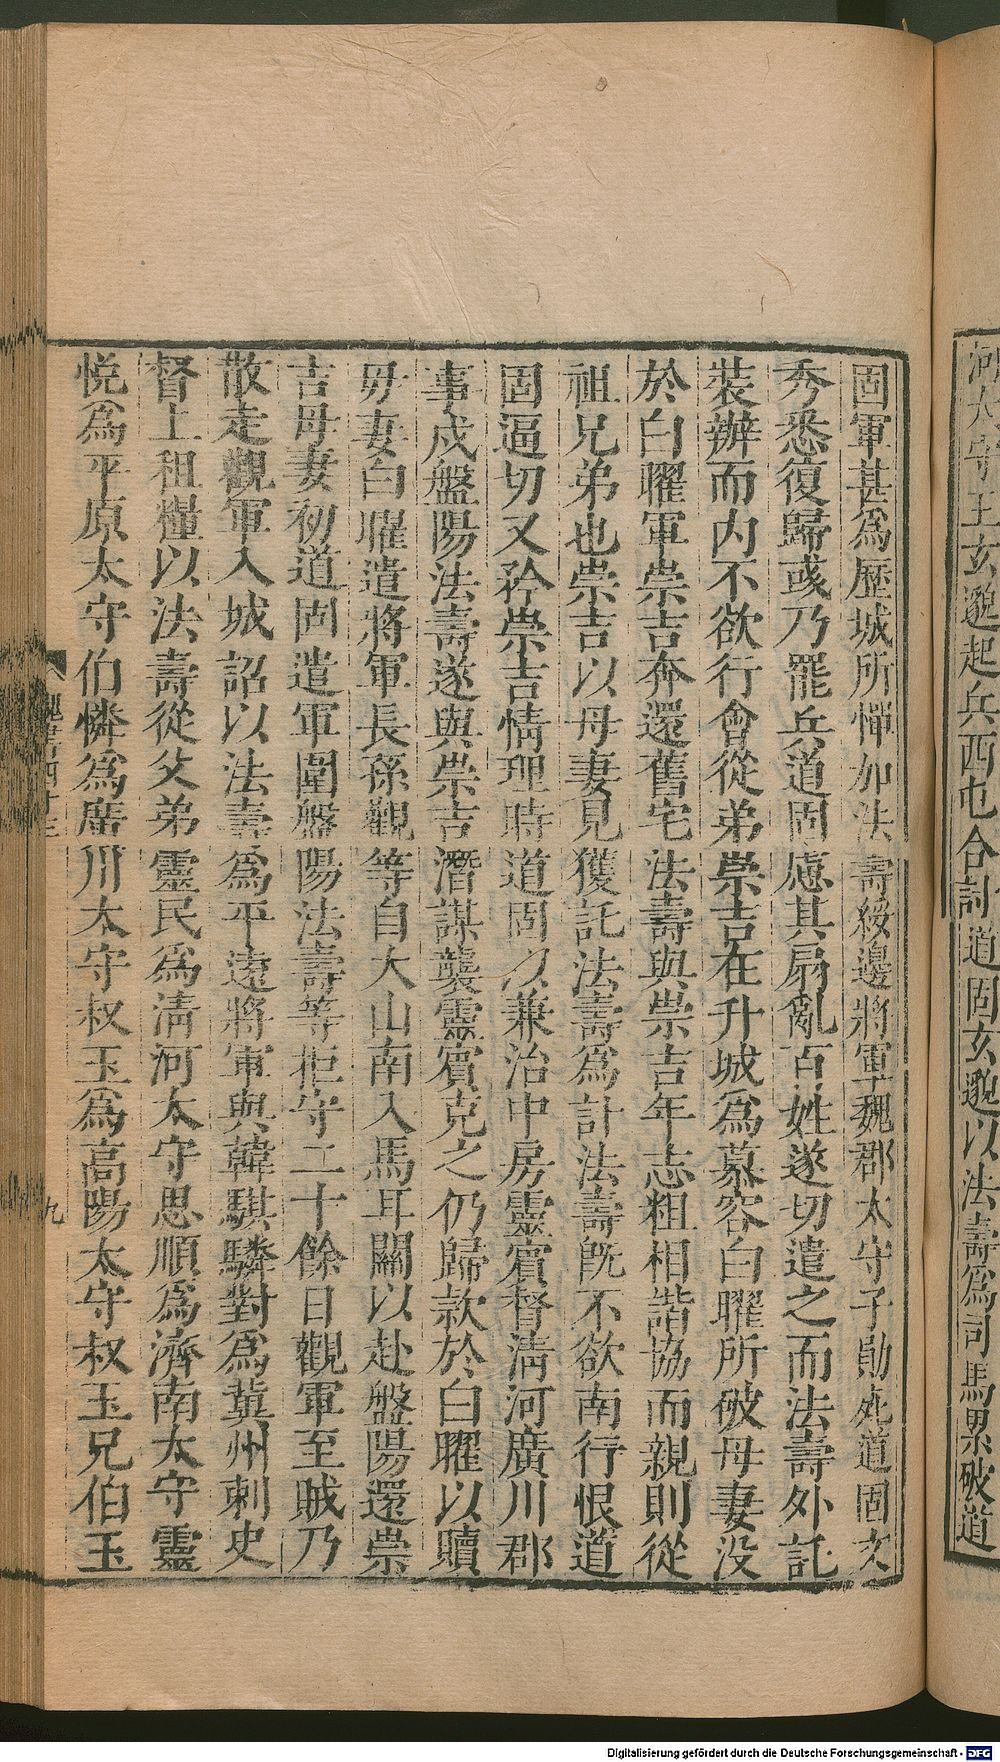 河太守王玄邈起兵西屯合討道固玄邈以法壽爲司馬累破道
固軍甚爲歷城所憚加法壽綏邊將軍魏郡太守子勛死道固文
秀悉復歸彧乃罷兵道固慮其扇亂百姓遂切遣之而法壽外託
裝辦而內不欲行會從弟崇吉在升城爲慕容白曜所破母妻沒
於白曜軍崇吉奔還舊宅法壽與崇吉年志粗相諧協而親則從
祖兄弟也崇吉以母妻見獲託法壽爲計法壽旣不欲南行恨道
固逼切又矜崇吉情理時道固以兼治中房靈賓督淸河廣川郡
事戍盤陽法壽遂與崇吉潛謀襲靈賓克之仍歸款於白曜以贖
母妻白曜遣將軍長孫觀等自大山南入馬耳關以赴盤陽還崇
吉母妻初道固遣軍圍盤陽法壽等拒守二十餘日觀軍至賊乃
散走觀軍入城詔以法壽爲平遠將軍與韓騏驎對爲冀州刺史
督上租糧以法壽從父弟靈民爲淸河太守思順爲濟南太守靈
悅爲平原太守伯憐爲廣川太守叔玉爲高陽太守叔玉兄伯玉
魏書四十三
九
Digitalisierung gefördert durch die Deutsche Forschungsgemeinschaft - DFG